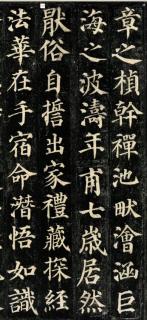 章之楨幹禪池畎澮涵巨
海之波濤年甫七歲居然
猒俗自誓出家禮藏探經
法華在手宿命潛悟如識